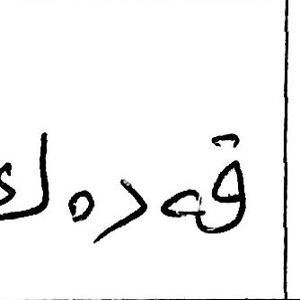 قەدەك